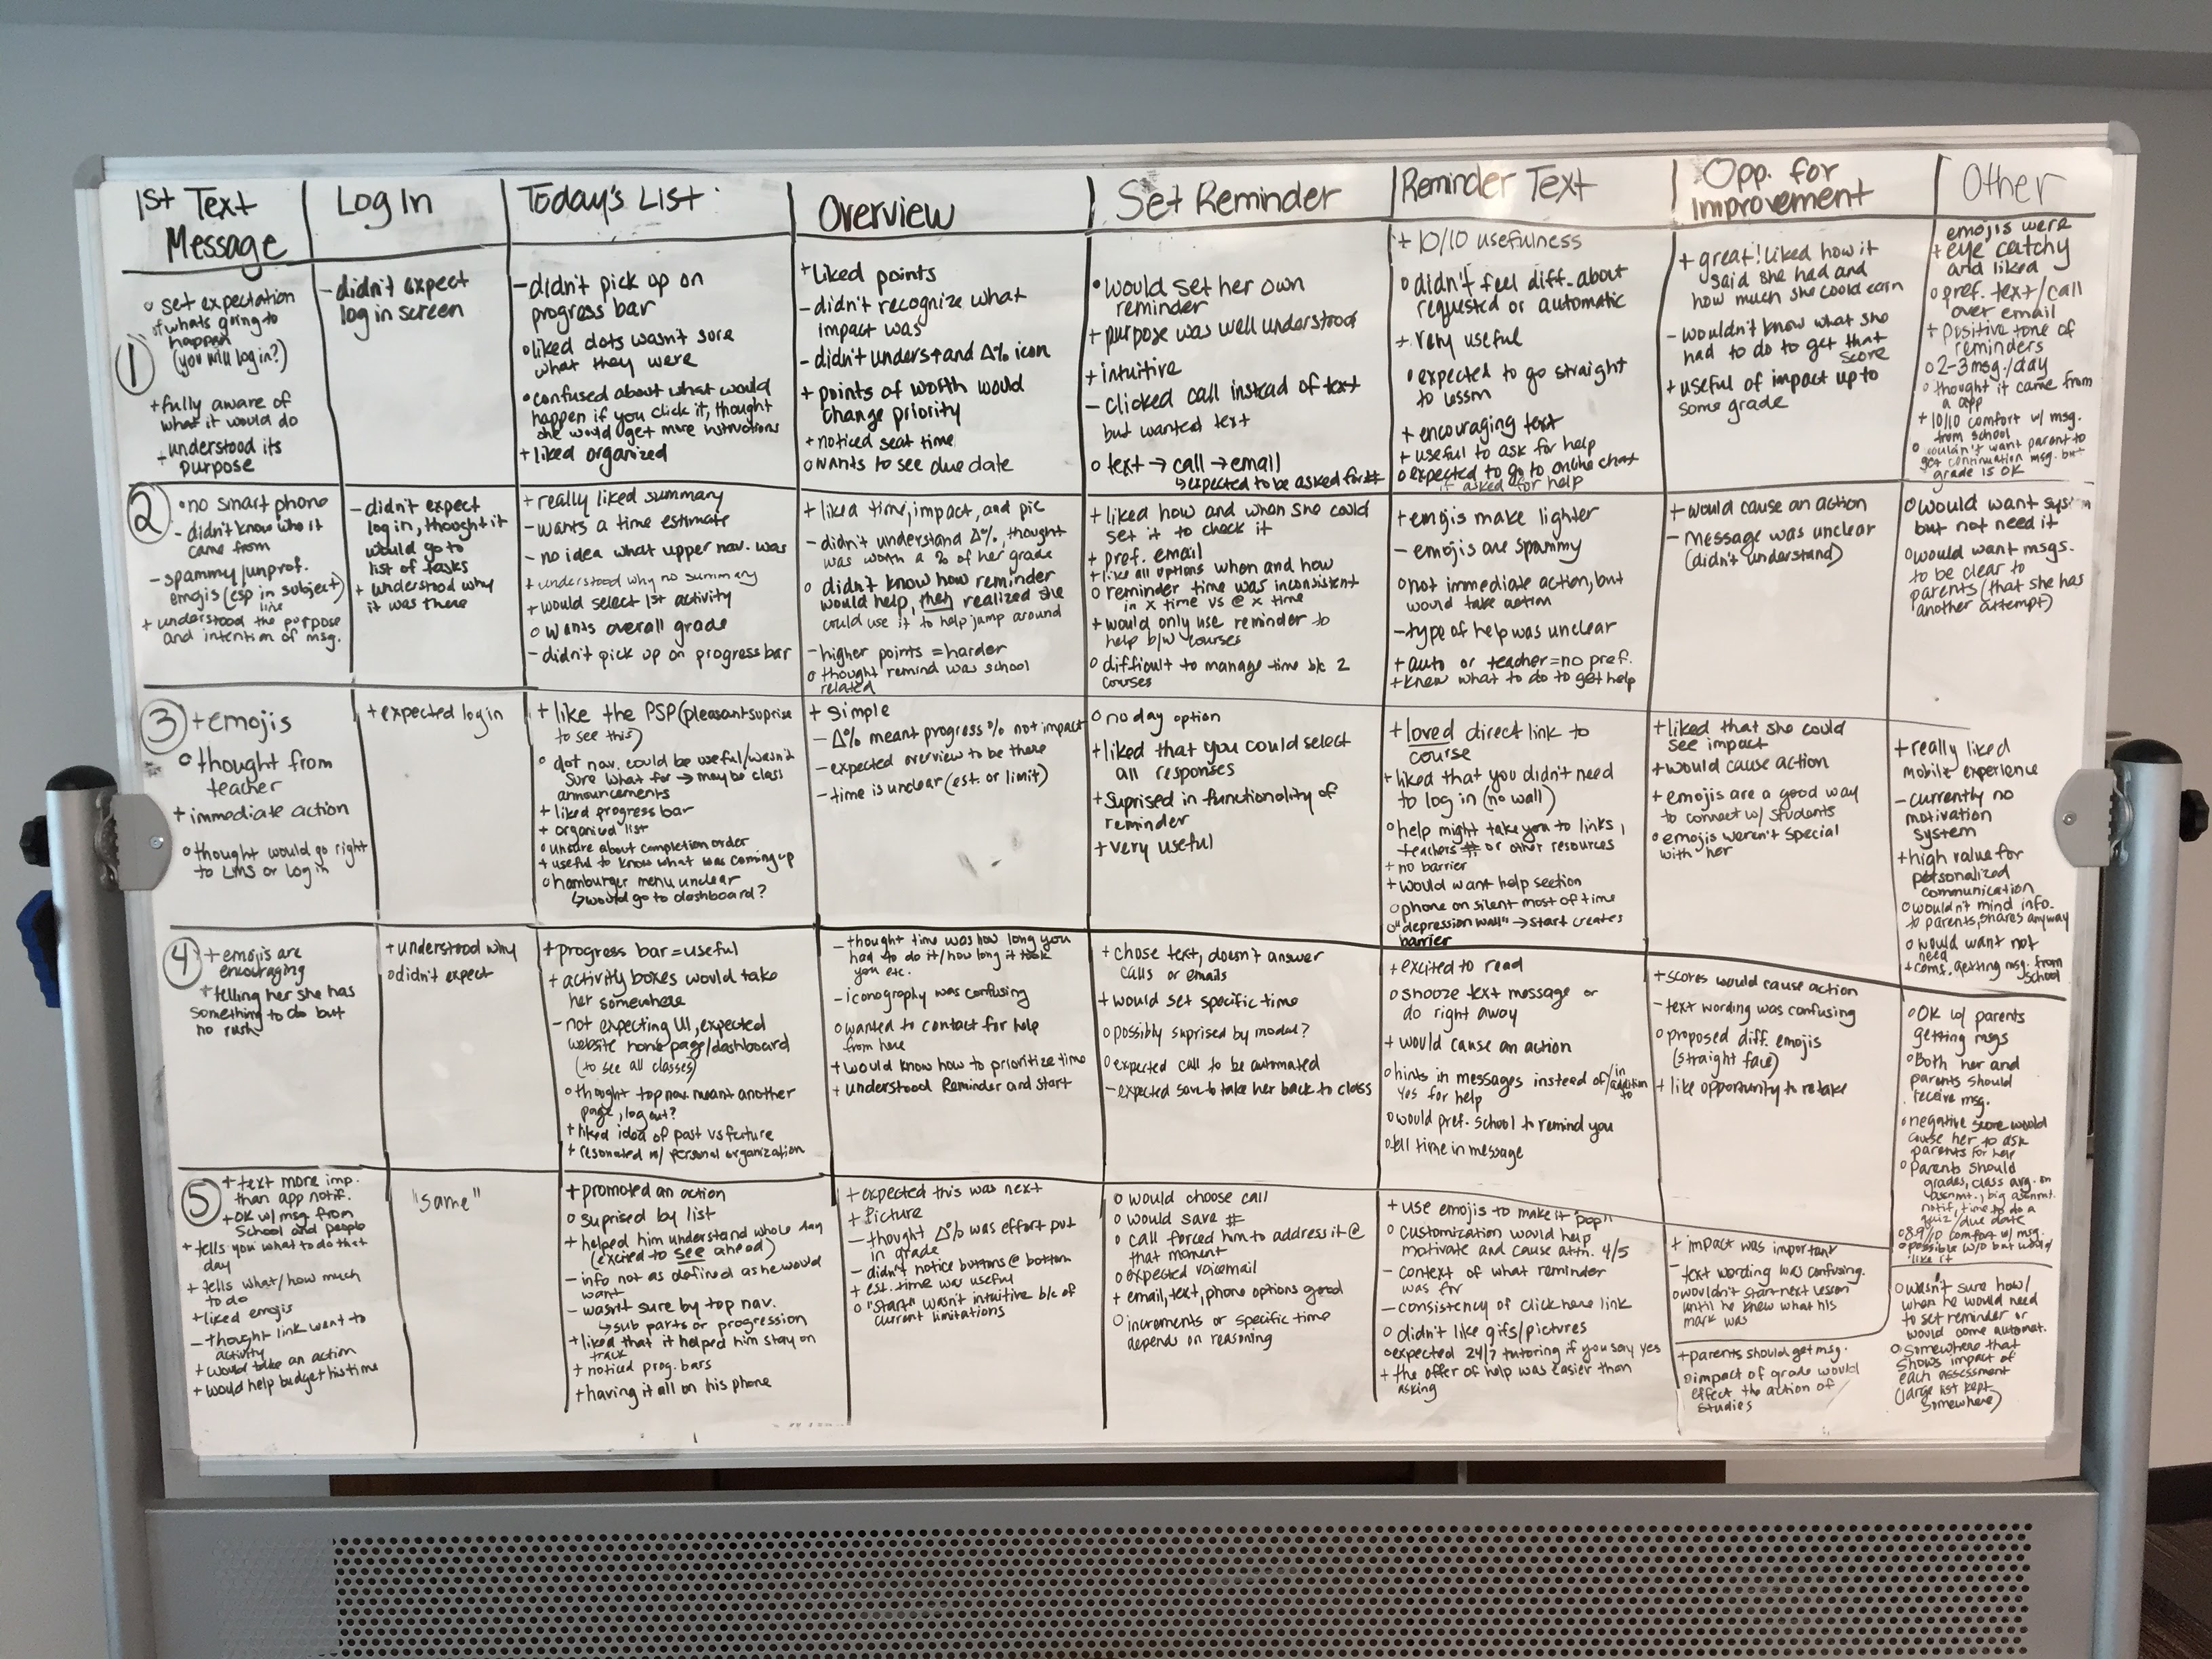 1st Text
Message
Log In
Today's List
Overview
Set Reminder
Reminder Text
Opp. for
Improvement
Other
1
o set expectation
of whats going to
happen
(you will log in?)
+ fully aware of
what it would do
+ understood its
purpose
- didn't expect
log in screen
- didn't pick up on
progress bar
o liked dots wasn't sure
what they were
o confused about what would
happen if you click it, thought
she would get more instructions
+ liked organized
+ Liked points
- didn't recognize what
impact was
- didn't understand Δ% icon
+ points of worth would
change priority
+ noticed seat time
o wants to see due date
o would set her own
reminder
+ purpose was well understood
+ intuitive
- clicked call instead of text
but wanted text
o text → call → email
↳ expected to be asked for #
+ 10/10 usefulness
o didn't feel diff. about
requested or automatic
+ very useful
o expected to go straight
to lesson
+ encouraging text
+ useful to ask for help
o expected to go to online chat
if asked for help
+ great! liked how it
said she had and
how much she could earn
- wouldn't know what she
had to do to get that
score
+ useful of impact up to
some grade
emojis were
+ eye catchy
and liked
o pref. text/call
over email
+ positive tone of
reminders
o 2-3 msg./day
o thought it came from
a app
+ 10/10 comfort w/ msg.
from school
o wouldn't want parent to
get continuation msg. but
grade is OK
2
o no smart phone
- didn't know who it
came from
- spammy/unprof.
emojis (esp in subject)
line
+ understood the purpose
and intention of msg.
- didn't expect
log in, thought it
would go to
list of tasks
+ understood why
it was there
+ really liked summary
- wants a time estimate
- no idea what upper nav. was
+ understood why no summary
+ would select 1st activity
o wants overall grade
- didn't pick up on progress bar
+ liked time, impact, and pic
- didn't understand Δ%, thought
was worth a % of her grade
o didn't know how reminder
would help, then realized she
could use it to help jump around
- higher points = harder
o thought remind was school
related
+ liked how and when she could
set it to check it
+ pref. email
+ like all options when and how
o reminder time was inconsistent
in x time vs @ x time
+ would only use reminder to
help b/w courses
o difficult to manage time b/c 2
courses
+ emojis make lighter
- emojis are spammy
o not immediate action, but
would take action
- type of help was unclear
+ auto or teacher = no pref.
+ knew what to do to get help
+ would cause an action
- message was unclear
(didn't understand)
o would want system
but not need it
o would want msgs.
to be clear to
parents (that she has
another attempt)
3
+ emojis
o thought from
teacher
+ immediate action
o thought would go right
to LMS or log in
+ expected login
+ like the PSP (pleasant suprise
to see this)
o dot nav. could be useful/wasn't
sure what for → maybe class
announcements
+ liked progress bar
+ organized list
o unsure about completion order
+ useful to know what was coming up
o hamburger menu unclear
↳ would go to dashboard?
+ simple
- Δ% meant progress % not impact
- expected overview to be there
- time is unclear (est. or limit)
o no day option
+ liked that you could select
all responses
+ suprised in functionality of
reminder
+ very useful
+ loved direct link to
course
+ liked that you didn't need
to log in (no wall)
o help might take you to links,
teachers # or other resources
+ no barrier
+ would want help section
o phone on silent most of time
o "depression wall" → start creates
barrier
+ liked that she could
see impact
+ would cause action
+ emojis are a good way
to connect w/ students
o emojis weren't special
with her
+ really liked
mobile experience
- currently no
motivation
system
+ high value for
personalized
communication
o wouldn't mind info.
to parents, shares anyway
o would want not
need
+ coms. getting msg. from
school
4
+ emojis are
encouraging
+ telling her she has
something to do but
no rush
+ understood why
o didn't expect
+ progress bar = useful
+ activity boxes would take
her somewhere
- not expecting UI, expected
website home page/dashboard
(to see all classes)
o thought top nav meant another
page, log out?
+ liked idea of past vs future
+ resonated w/ personal organization
- thought time was how long you
had to do it/how long it took
you etc.
- iconography was confusing
o wanted to contact for help
from here
+ would know how to prioritize time
+ understood Reminder and start
+ chose text, doesn't answer
calls or emails
+ would set specific time
o possibly suprised by modal?
o expected call to be automated
- expected save to take her back to class
+ excited to read
o snooze text message or
do right away
+ would cause an action
o hints in messages instead of/in addition to
yes for help
o would pref. school to remind you
o tell time in message
+ scores would cause action
- text wording was confusing
o proposed diff. emojis
(straight face)
+ like opportunity to retake
o OK w/ parents
getting msgs
o Both her and
parents should
receive msg.
o negative score would
cause her to ask
parents for help
o parents should
grades, class avg. on
assnmt., big assnmt.
notif, time to do a
quiz/due date
o 8.9/10 comfort w/ msg.
o possible w/o but would
like it
5
+ text more imp.
than app notif.
+ OK w/ msg from
school and people
+ tells you what to do that
day
+ tells what/how much
to do
+ liked emojis
- thought link went to
activity
+ would take an action
+ would help budget his time
"same"
+ promoted an action
o suprised by list
+ helped him understand whole day
(excited to see ahead)
- info not as defined as he would
want
- wasn't sure by top nav.
↳ sub parts or progression
+ liked that it helped him stay on
track
+ noticed prog. bars
+ having it all on his phone
+ expected this was next
+ Picture
- thought Δ% was effort put
in grade
- didn't notice buttons @ bottom
+ est. time was useful
o "Start" wasn't intuitive b/c of
current limitations
o would choose call
o would save #
o call forced him to address it @
that moment
o expected voicemail
+ email, text, phone options good
o increments or specific time
depends on reasoning
+ use emojis to make it "pop"
o customization would help
motivate and cause attn. 4/5
- context of what reminder
was for
- consistency of click here link
o didn't like gifs/pictures
o expected 24/7 tutoring if you say yes
+ the offer of help was easier than
asking
+ impact was important
- text wording was confusing.
o wouldn't start next lesson
until he knew what his
mark was
+ parents should get msg.
o impact of grade would
effect the action of
studies
o wasn't sure how/
when he would need
to set reminder or
would come automat.
o Somewhere that
shows impact of
each assessment
(large list kept
somewhere)